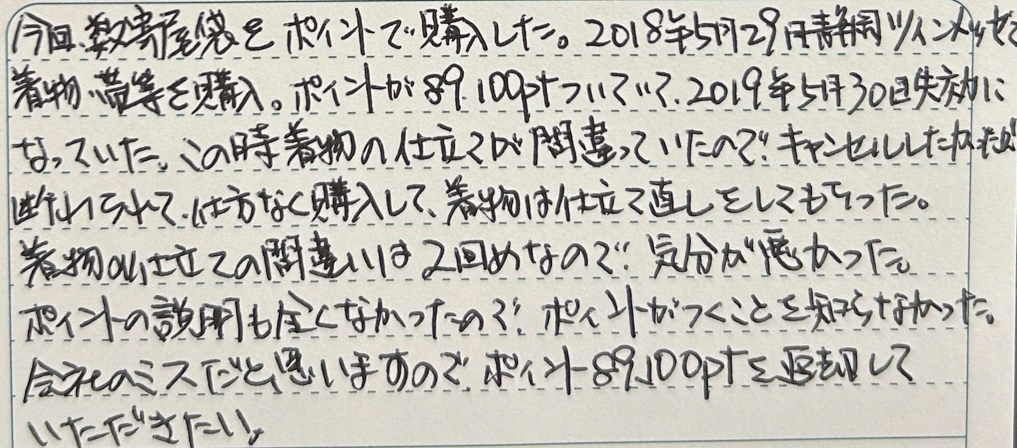 今回、数寄屋袋をポイントで購入した。2018年5月29日静岡ツインメッセで
着物、帯等を購入。ポイントが89.100ptついていて、2019年5月30日失効に
なっていた。この時着物の仕立てが間違っていたので、キャンセルしたかったが
断わられて、仕方なく購入して、着物は仕立て直しをしてもらった。
着物の仕立ての間違いは2回めなので、気分が悪かった。
ポイントの説明も全くなかったので、ポイントがつくことを知らなかった。
会社のミスだと思いますので、ポイント89,100ptを返却して
いただきたい。